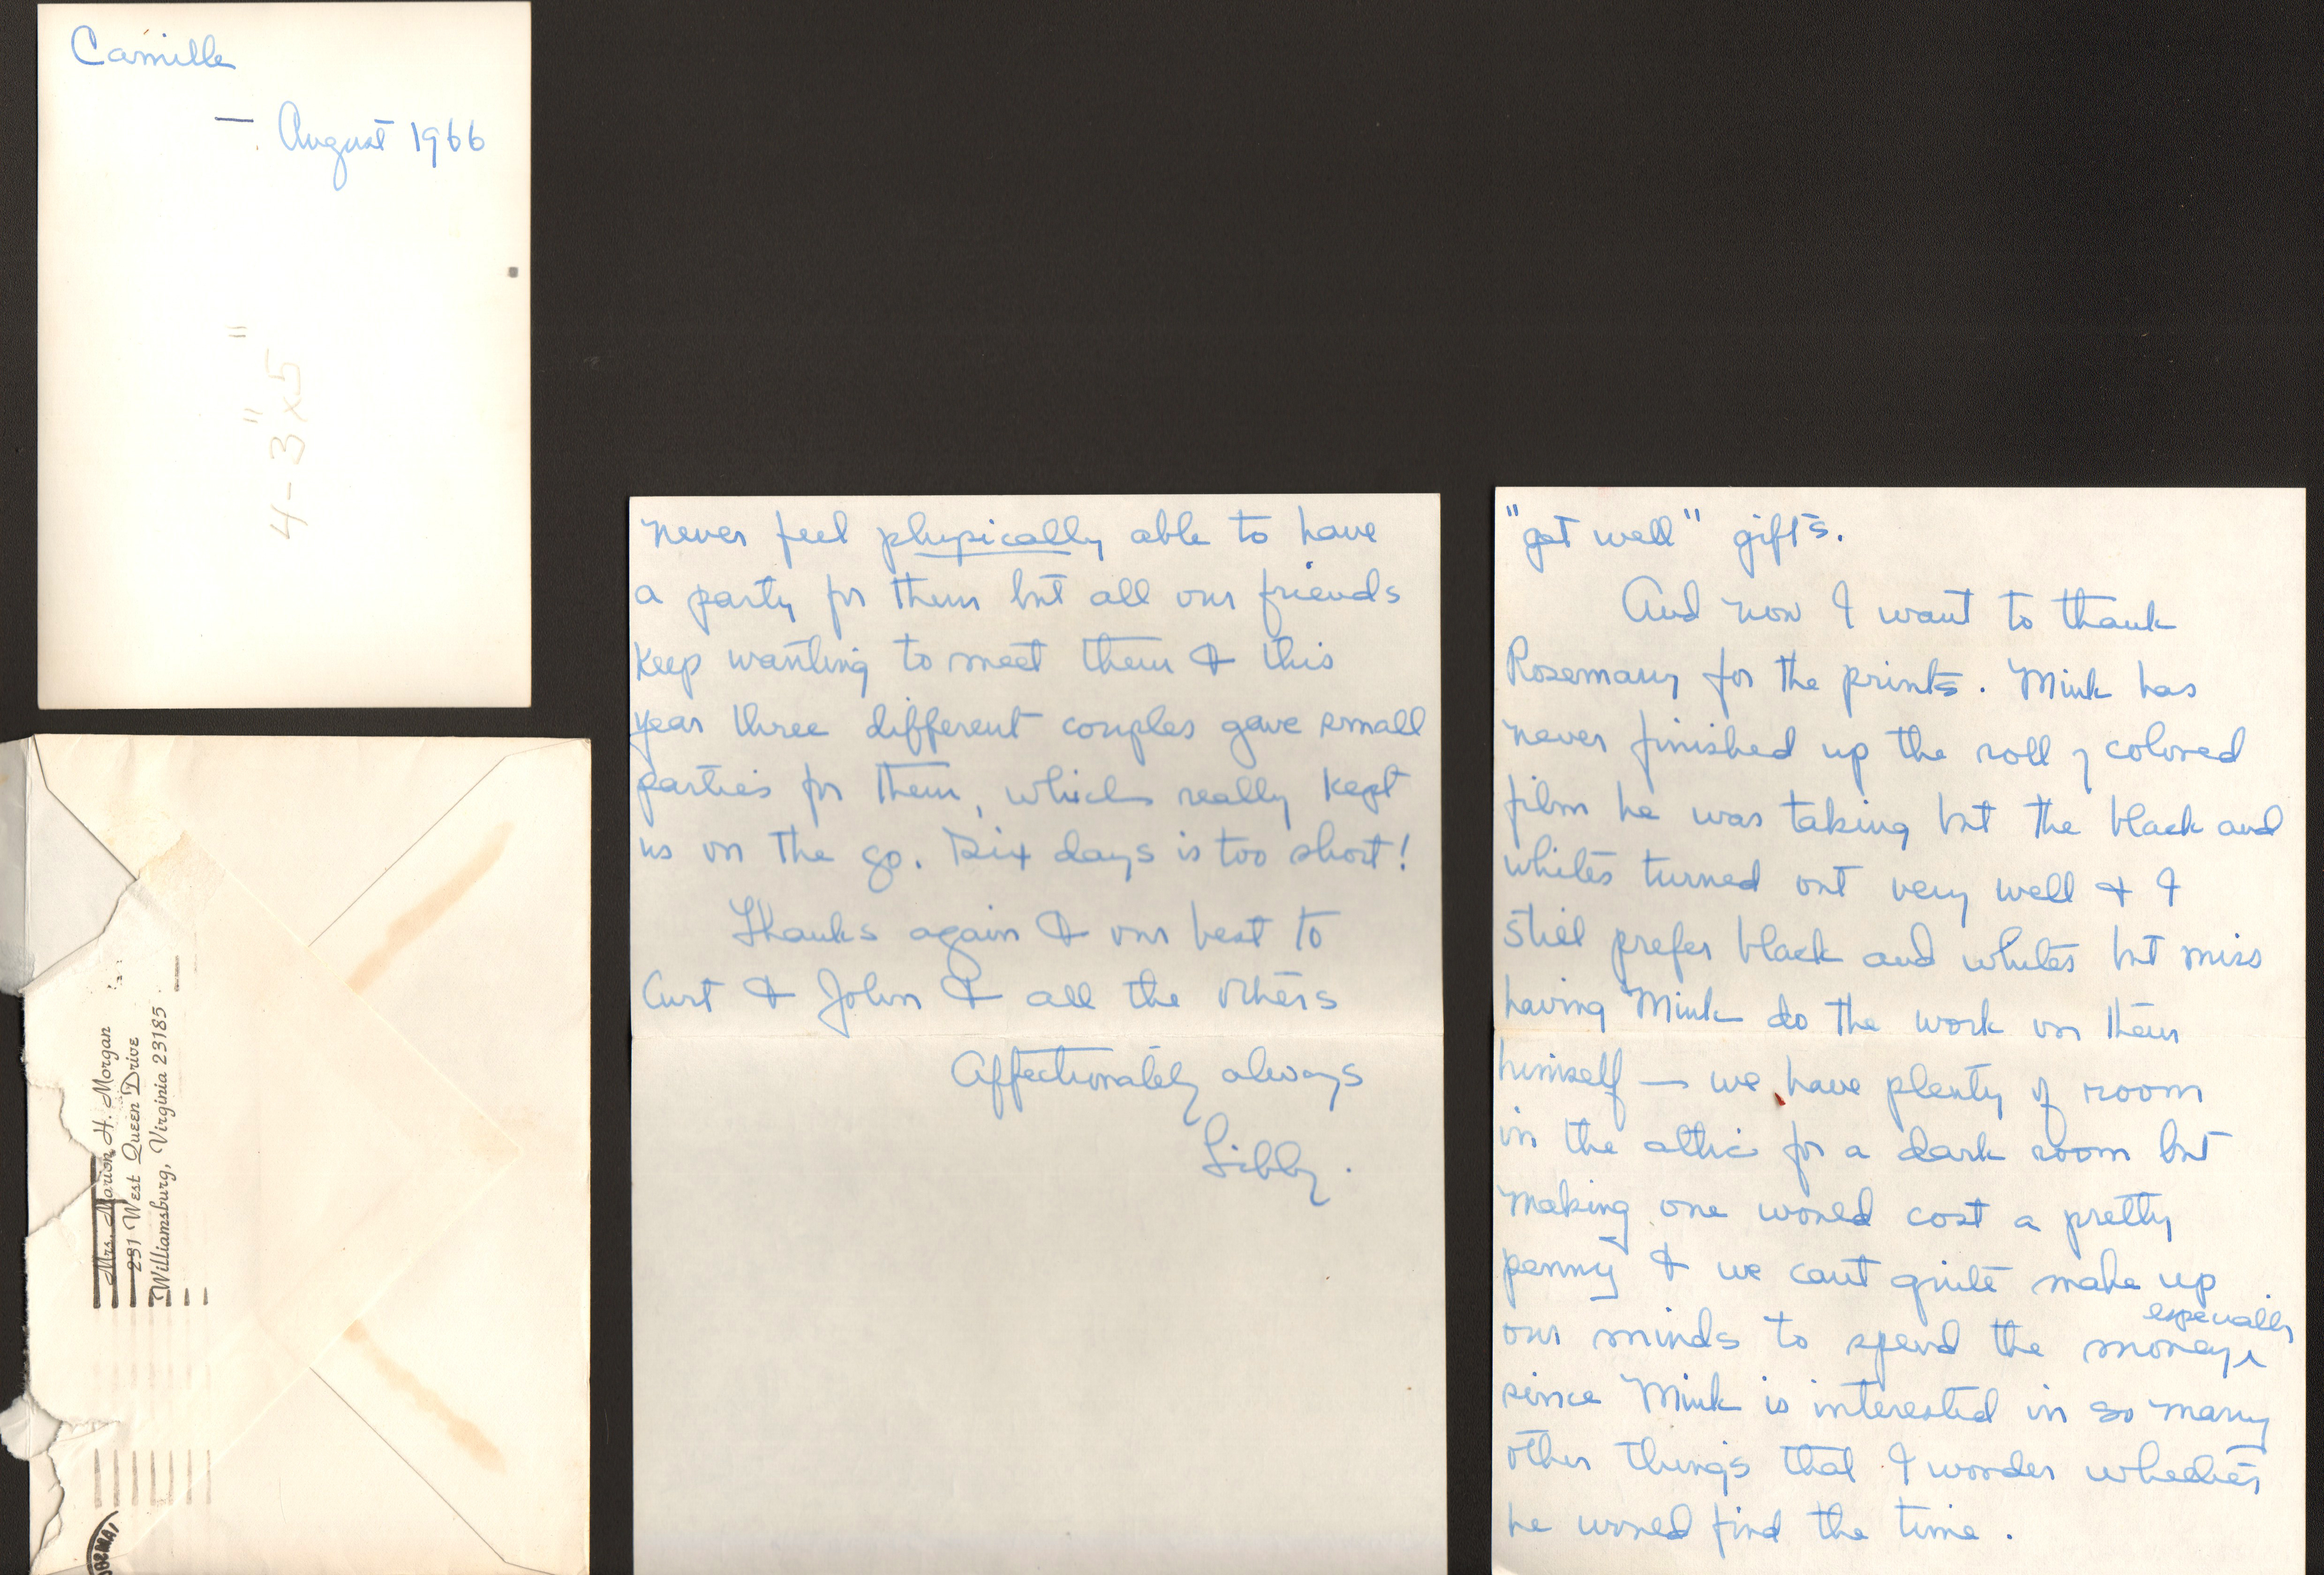 Camille
— August 1966
4-3"x5"
Mrs. Marion H. Morgan
231 West Queen Drive
Williamsburg, Virginia 23185
never feel physically able to have
a party for them but all our friends
keep wanting to meet them & this
year three different couples gave small
parties for them, which really kept
us on the go. Six days is too short!
Thanks again & our best to
Curt & John & all the others
Affectionately always
Libby.
"get well" gifts.
And now I want to thank
Rosemary for the prints. Mink has
never finished up the roll of colored
film he was taking but the black and
whites turned out very well & I
still prefer black and whites but miss
having Mink do the work on them
himself — we have plenty of room
in the attic for a dark room but
making one would cost a pretty
penny & we cant quite make up
our minds to spend the money, especially
since Mink is interested in so many
other things that I wonder whether
he would find the time.